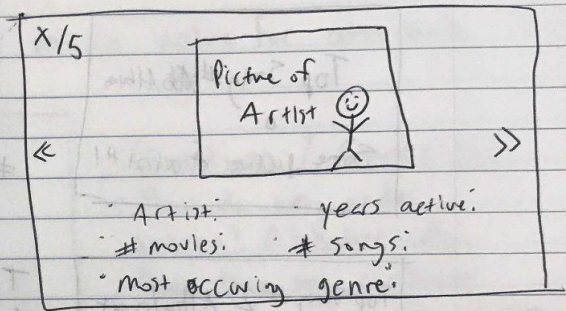 X/5
Picture of
Artist
<< >>
· Artist: · years active:
· # movies: · # songs:
· most occuring genre: